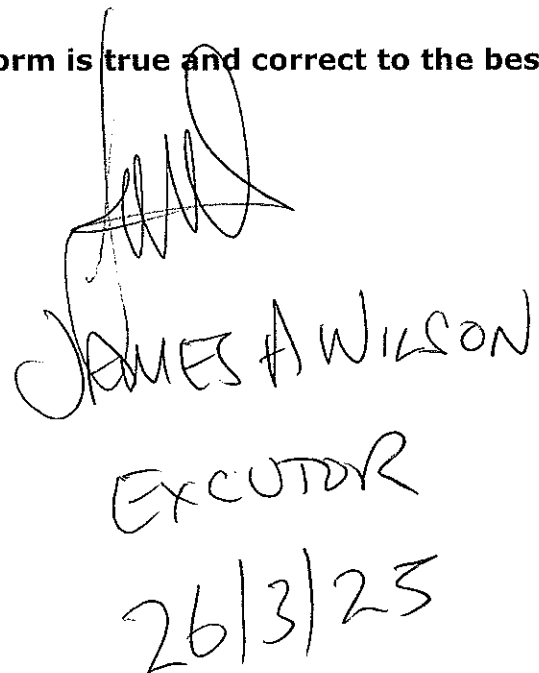 orm is true and correct to the bes
JAMES A WILSON
EXCUTOR
26/3/25